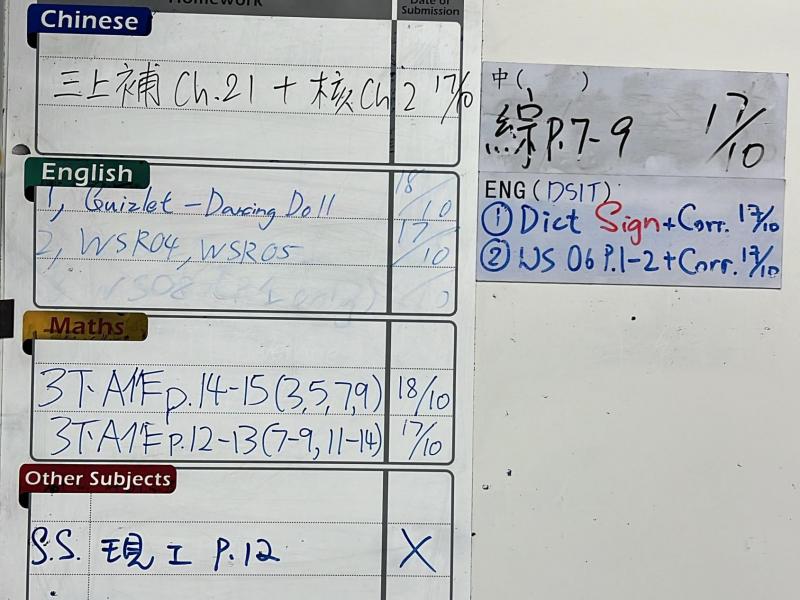 Homework
Date of Submission
Chinese
三上補 Ch.21 + 核Ch 2 17/10
English
1, Quizlet - Dancing Doll 18/10
2, WSR04, WSR05 17/10
Maths
3下A作 p.14-15 (3,5,7,9) 18/10
3下A作 p.12-13 (7-9, 11-14) 17/10
Other Subjects
S.S. 現工 P.12 X
中( )
綜P.7-9 17/10
ENG (DSIT)
① Dict Sign + Corr. 17/10
② WS 06 P.1-2 + Corr. 17/10